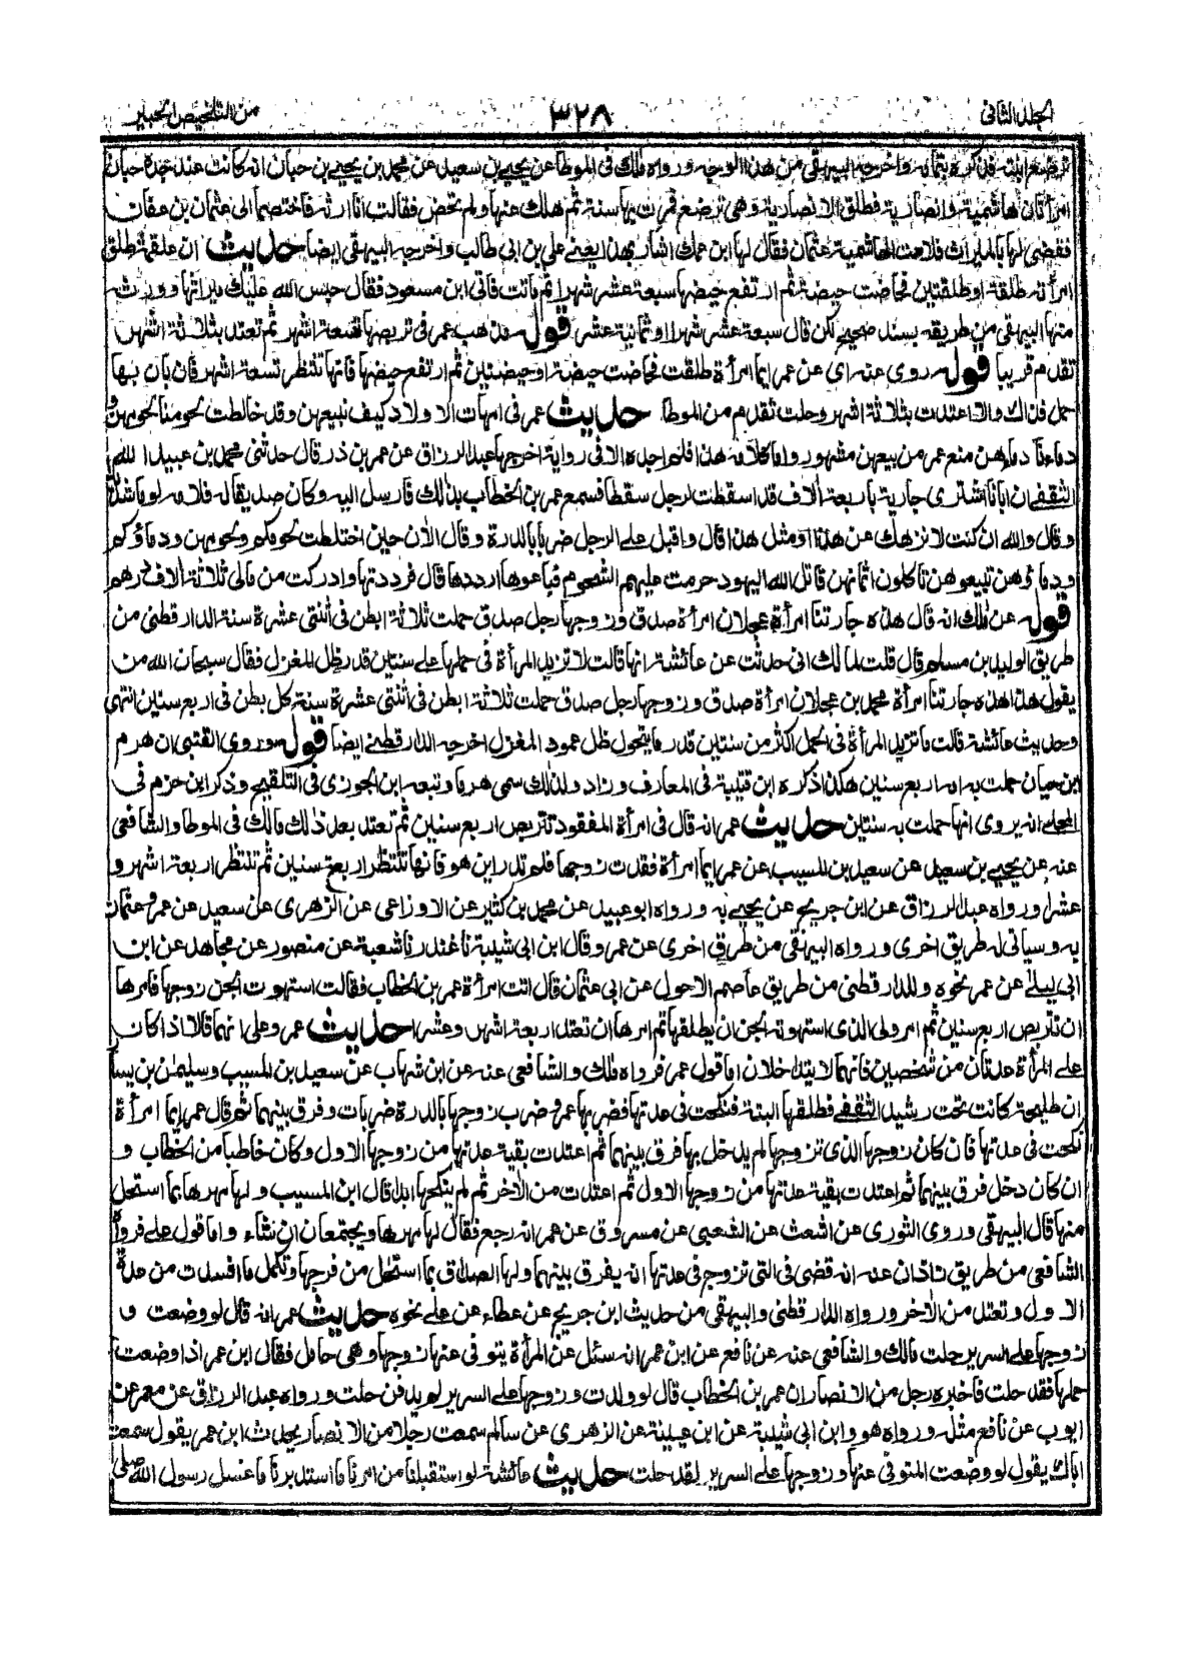 الجلد الثانى
٣٢٨
من التلخيص الحبير
ترضع ابنته فذكره بتمامه واخرجه البيهقى من هذا الوجه ورواه مالك فى الموطا عن يحيى بن سعيد عن محمد بن يحيى بن حبان انه كانت عند جده حبان
امرأتان هاشمية وانصارية فطلق الانصارية وهى ترضع فمرت بها سنة ثم هلك عنها ولم تحض فقالت انا ارثه فاختصما الى عثمان بن عفان
فقضى لها بالميراث فلامت الهاشمية عثمان فقال لها ابن عمك اشار بهذا يعنى على بن ابى طالب واخرجه البيهقى ايضا حديث ان علقمة طلق
امرأته طلقة او طلقتين فحاضت حيضة ثم ارتفع حيضها سبعة عشر شهرا ثم ماتت فاتى ابن مسعود فقال حبس الله عليك ميراثها وورثه
منها البيهقى من طريقه بسند صحيح لكن قال سبعة عشر شهرا او ثمانية عشر قوله مذهب عمر فى تربصها تسعة اشهر ثم تعتد بثلاثة اشهر
تقدم قريبا قوله روى عنه اى عن عمر ايما امرأة طلقت فحاضت حيضة او حيضتين ثم ارتفع حيضها فانها تنتظر تسعة اشهر فان بان بها
حمل فذاك والا اعتدت بثلاثة اشهر وحلت تقدم من الموطا حديث عمر فى امهات الاولاد كيف نبيعهن وقد خالطت لحومنا لحومهن و
دماءنا دماءهن منع عمر من بيعهن مشهور واما كلامه هذا فلم اجده الا فى رواية اخرجها عبد الرزاق عن عمر بن ذر قال حدثنى محمد بن عبيد الله
الثقفى ان ابانا اشترى جارية باربعة آلاف قد اسقطت لرجل سقطا فسمع عمر بن الخطاب بذلك فارسل اليه وكان صديقا له فلامه لوما شديدا
وقال والله ان كنت لانزهك عن هذا او مثل هذا قال واقبل على الرجل ضربا بالدرة وقال الآن حين اختلطت لحومكم ولحومهن ودماؤكم
ودماؤهن تبيعوهن تاكلون اثمانهن قاتل الله اليهود حرمت عليهم الشحوم فباعوها ارددها قال فرددتها وادركت من مالى ثلاثة آلاف درهم
قوله عن مالك انه قال هذه جارتنا امرأة عجلان امرأة صدق وزوجها رجل صدق حملت ثلاثة ابطن فى اثنتى عشرة سنة الدارقطنى من
طريق الوليد بن مسلم قال قلت لمالك انى حدثت عن عائشة انها قالت لا تزيد المرأة فى حملها على سنتين قدر ظل المغزل فقال سبحان الله من
يقول هذا هذه جارتنا امرأة محمد بن عجلان امرأة صدق وزوجها رجل صدق حملت ثلاثة ابطن فى اثنتى عشرة سنة كل بطن فى اربع سنين انتهى
وحديث عائشة قالت ما تزيد المرأة فى الحمل اكثر من سنتين قدر ما يتحول ظل عمود المغزل اخرجه الدارقطنى ايضا قوله وروى القتبى ان هرم
ابن حيان حملت به امه اربع سنين هكذا ذكره ابن قتيبة فى المعارف وزاد ولذلك سمى هرما وتبعه ابن الجوزى فى التلقيح وذكر ابن حزم فى
المحلى انه يروى انها حملت به سنتين حديث عمر انه قال فى امرأة المفقود تتربص اربع سنين ثم تعتد بعد ذلك مالك فى الموطا والشافعى
عنه عن يحيى بن سعيد عن سعيد بن المسيب عن عمر ايما امرأة فقدت زوجها فلم تدر اين هو فانها تنتظر اربع سنين ثم تنتظر اربعة اشهر و
عشرا ورواه عبد الرزاق عن ابن جريج عن يحيى به ورواه ابو عبيد عن محمد بن كثير عن الاوزاعى عن الزهرى عن سعيد عن عمر وعثمان
به وسياتى له طريق اخرى ورواه البيهقى من طريق اخرى عن عمر وقال ابن ابى شيبة نا غندر نا شعبة عن منصور عن مجاهد عن ابن
ابى ليلى عن عمر نحوه وللدارقطنى من طريق عاصم الاحول عن ابى عثمان قال اتت امرأة عمر بن الخطاب فقالت استهوت الجن زوجها فامرها
ان تتربص اربع سنين ثم امر ولى الذى استهوته الجن ان يطلقها ثم امرها ان تعتد اربعة اشهر وعشرا حديث عمر وعلى انهما قالا اذا كان
على المرأة عدتان من شخصين فانهما لا يتداخلان اما قول عمر فرواه مالك والشافعى عنه عن ابن شهاب عن سعيد بن المسيب وسليمن بن يسار
ان طليحة كانت تحت رشيد الثقفى فطلقها البتة فنكحت فى عدتها فضربها عمر وضرب زوجها بالدرة ضربات وفرق بينهما ثم قال عمر ايما امرأة
نكحت فى عدتها فان كان زوجها الذى تزوجها لم يدخل بها فرق بينهما ثم اعتدت بقية عدتها من زوجها الاول وكان خاطبا من الخطاب و
ان كان دخل فرق بينهما ثم اعتدت بقية عدتها من زوجها الاول ثم اعتدت من الآخر ثم لم ينكحها ابدا قال ابن المسيب ولها مهرها بما استحل
منها قال البيهقى وروى الثورى عن اشعث عن الشعبى عن مسروق عن عمر انه رجع فقال لها مهرها ويجتمعان ان شاء واما قول على فرواه
الشافعى من طريق زاذان عنه انه قضى فى التى تزوج فى عدتها انه يفرق بينهما ولها الصداق بما استحل من فرجها وتكمل ما افسدت من عدة
الاول وتعتد من الآخر ورواه الدارقطنى والبيهقى من حديث ابن جريج عن عطاء عن على نحوه حديث عمر انه قال لو وضعت و
زوجها على السرير حلت مالك والشافعى عنه عن نافع عن ابن عمر انه سئل عن المرأة يتوفى عنها زوجها وهى حامل فقال ابن عمر اذا وضعت
حملها فقد حلت فاخبره رجل من الانصار ان عمر بن الخطاب قال لو ولدت وزوجها على السرير لم يدفن حلت ورواه عبد الرزاق عن معمر عن
ايوب عن نافع مثله ورواه هو وابن ابى شيبة عن ابن عيينة عن الزهرى عن سالم سمعت رجلا من الانصار يحدث ابن عمر يقول سمعت
اباك يقول لو وضعت المتوفى عنها وزوجها على السرير لقد حلت حديث عائشة لو استقبلنا من امرنا ما استدبرنا ما غسل رسول الله صلى